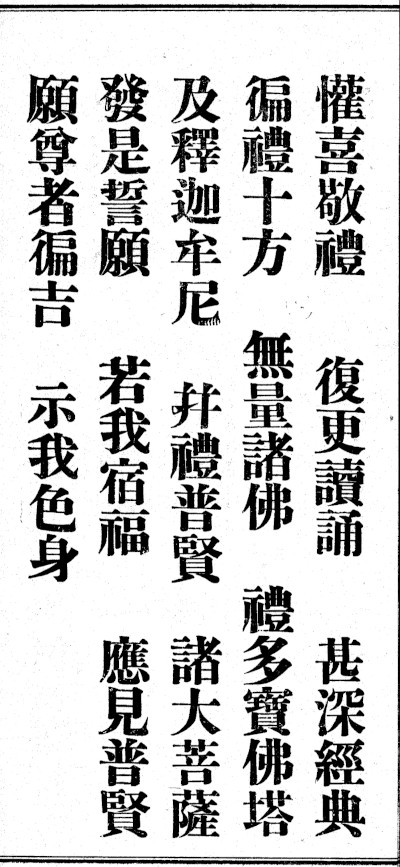 懽喜敬禮　復更讀誦　甚深經典
徧禮十方　無量諸佛　禮多寶佛塔
及釋迦牟尼　幷禮普賢　諸大菩薩
發是誓願　若我宿福　應見普賢
願尊者徧吉　示我色身